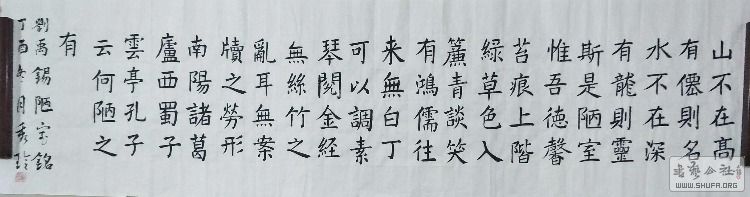 山不在高
有僊則名
水不在深
有龍則靈
斯是陋室
惟吾德馨
苔痕上階
綠草色入
簾青談笑
有鴻儒往
来無白丁
可以調素
琴閱金経
無絲竹之
亂耳無案
牘之勞形
南陽諸葛
廬西蜀子
雲亭孔子
云何陋之
有
劉禹錫陋室銘
丁酉冬月秀玲
书艺公社
WWW.SHUFA.ORG